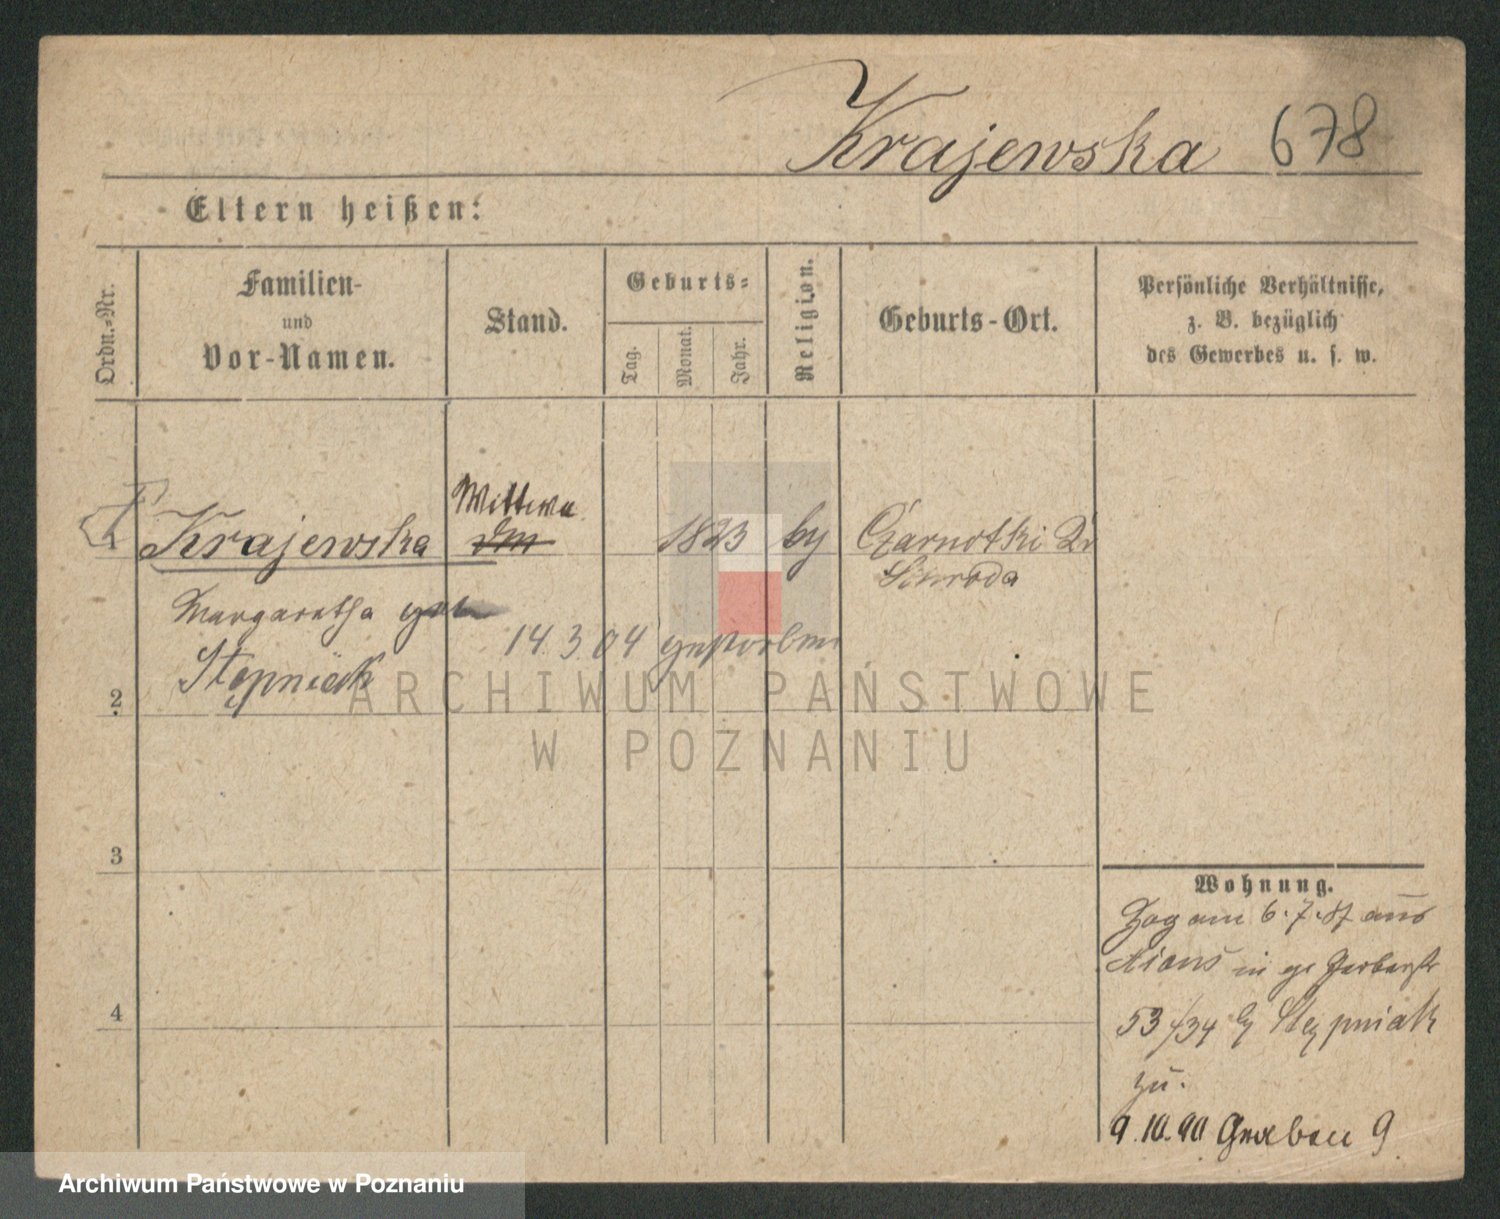 Krajewska 678
Eltern heißen:
Ordn.-Nr.
Familien-
und
Vor-Namen.
Stand.
Geburts-
Tag.
Monat.
Jahr.
Religion.
Geburts-Ort.
Persönliche Verhältnisse,
z. B. bezüglich
des Gewerbes u. s. w.
1 Krajewska Wittwe 1823 Czarnotki Kr
Schroda
Margaretha geb
14.3.04 gestorben
Stępniak
2
ARCHIWUM PAŃSTWOWE
W POZNANIU
3
Wohnung.
Zog am 6.7.87 aus
Xions in gr Gerberstr
4
53/34 by Stępniak
zu.
9.10.90 Graben 9
Archiwum Państwowe w Poznaniu